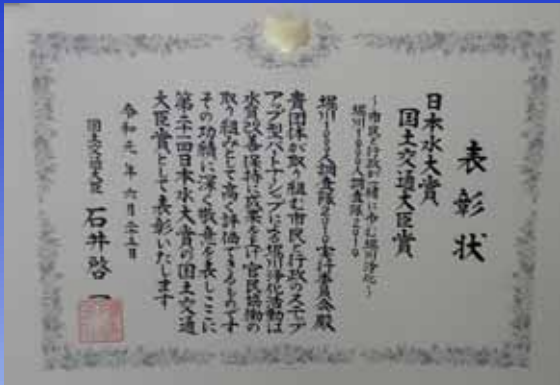 表彰状
日本水大賞
国土交通大臣賞
〜市民と行政が一緒に歩む堀川浄化〜
堀川1000人調査隊2010
堀川1000人調査隊2010実行委員会殿
貴団体が取り組む市民と行政のステップ
アップ型パートナーシップによる堀川浄化活動は
水質改善保持に成果を上げ官民協働の
取り組みとして高く評価できるものです
その功績に深く敬意を表しここに
第二十一回日本水大賞の国土交通
大臣賞として表彰いたします
令和元年六月二五日
国土交通大臣 石井啓一